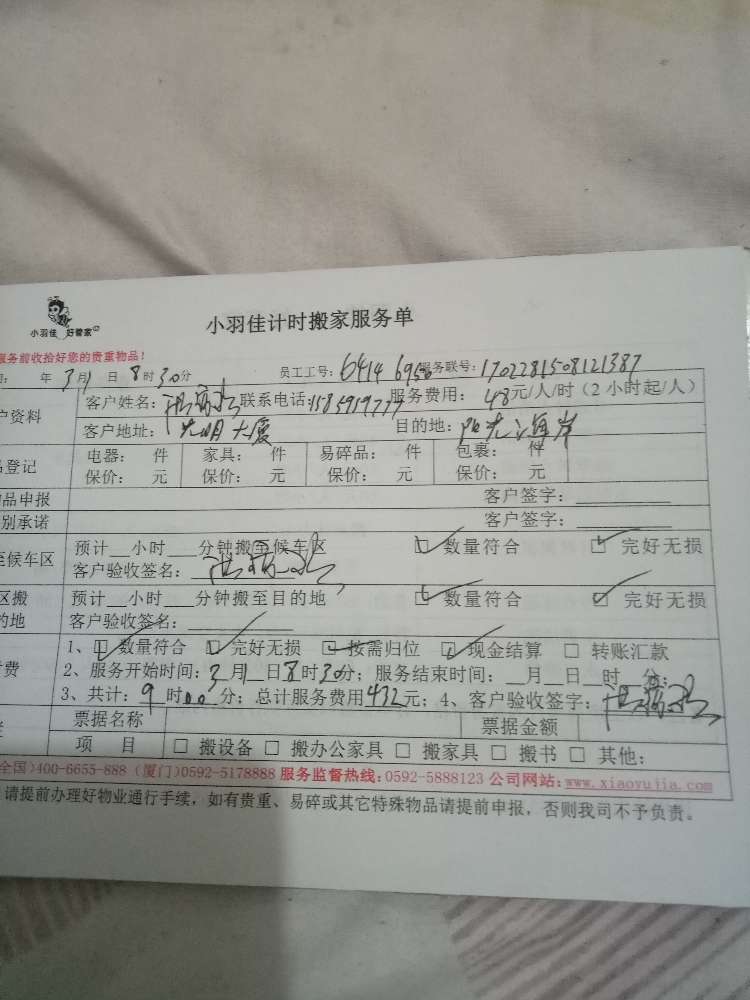 小羽佳 好管家
小羽佳计时搬家服务单
服务前收拾好您的贵重物品!
年3月1日8时30分 员工工号:6414 6956 服务联号:1702281508121387
户资料 客户姓名: 联系电话: 服务费用:48元/人/时(2小时起/人)
客户地址:光明大厦 目的地:阳光海岸
品登记 电器: 件 家具: 件 易碎品: 件 包裹: 件
保价: 元 保价: 元 保价: 元 保价: 元
品申报 客户签字:
别承诺 客户签字:
至候车区 预计__小时___分钟搬至候车区 □ 数量符合 □ 完好无损
客户验收签名:
区搬的地 预计__小时___分钟搬至目的地 □ 数量符合 □ 完好无损
客户验收签名:
付费 1、□ 数量符合 □ 完好无损 □ 按需归位 □ 现金结算 □ 转账汇款
2、服务开始时间:3月1日8时30分;服务结束时间:__月__日__时__分;
3、共计:9时00分;总计服务费用432元;4、客户验收签字:
票据名称 票据金额
项 目 □ 搬设备 □ 搬办公家具 □ 搬家具 □ 搬书 □ 其他:
全国)400-6655-888 (厦门)0592-5178888 服务监督热线:0592-5888123 公司网站:www.xiaoyujia.com
请提前办理好物业通行手续,如有贵重、易碎或其它特殊物品请提前申报,否则我司不予负责。